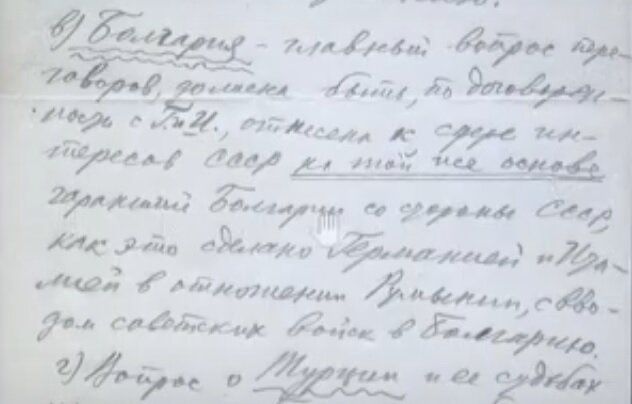 в) Болгария – главный вопрос пере-
говоров, должна быть, по договорен-
ности с Г. и И., отнесена к сфере ин-
тересов СССР на той же основе
гарантий Болгарии со стороны СССР,
как это сделано Германией и Ита-
лией в отношении Румынии, с вво-
дом советских войск в Болгарию.
г) Вопрос о Турции и ее судьбах